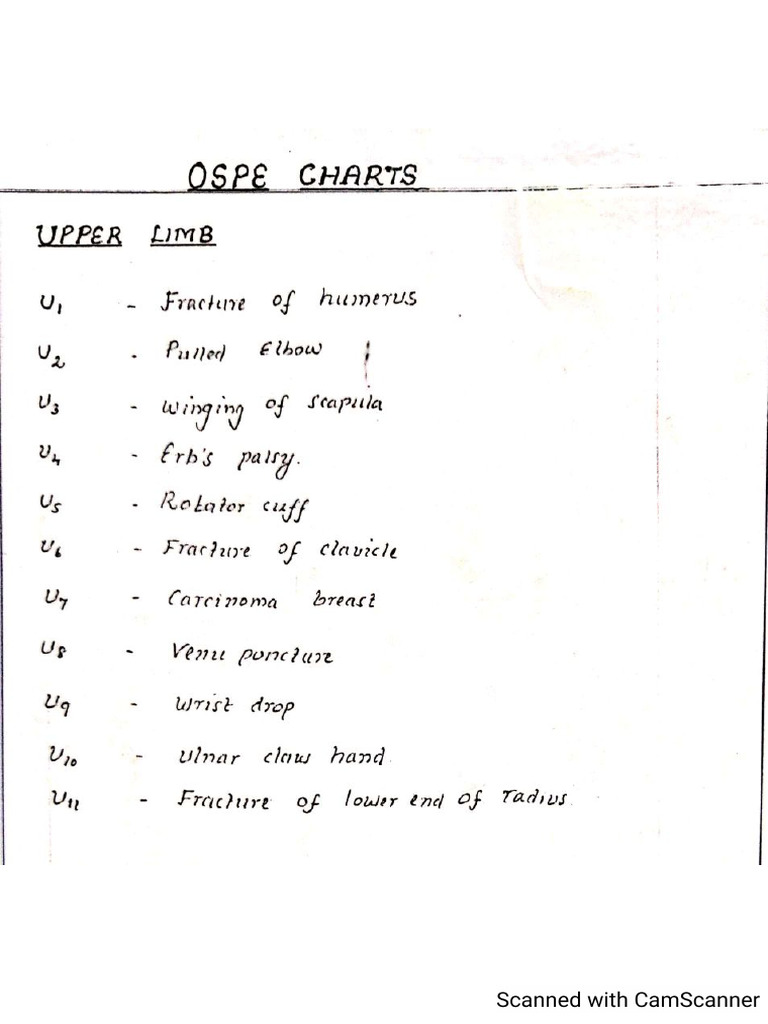 OSPE CHARTS
UPPER LIMB
U1 - Fracture of humerus
U2 - Pulled Elbow
U3 - Winging of scapula
U4 - Erb's palsy.
U5 - Rotator cuff
U6 - Fracture of clavicle
U7 - Carcinoma breast
U8 - Venu puncture
U9 - Wrist drop
U10 - Ulnar claw hand
U11 - Fracture of lower end of radius.
Scanned with CamScanner